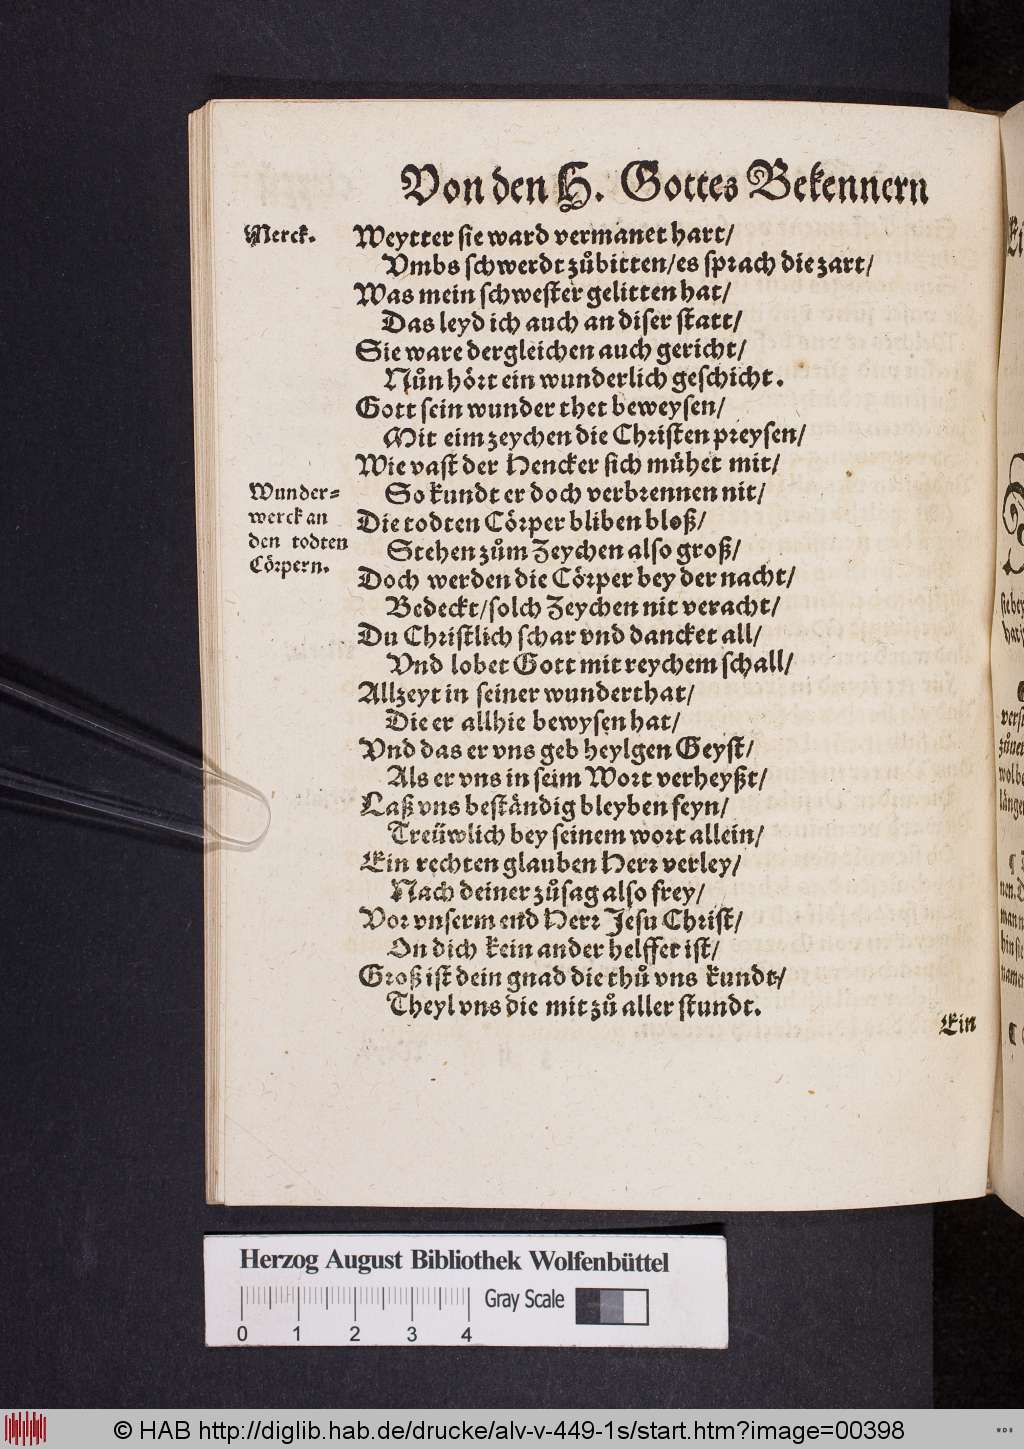 Von den H. Gottes Bekennern
Merck.
Weytter sie ward vermanet hart/
Vmbs schwerdt zůbitten/es sprach die zart/
Was mein schwester gelitten hat/
Das leyd ich auch an diser statt/
Sie ware dergleichen auch gericht/
Nůn hört ein wunderlich geschicht.
Gott sein wunder thet beweysen/
Mit eim zeychen die Christen preysen/
Wie vast der Hencker sich mühet mit/
So kundt er doch verbrennen nit/
Wunder=
werck an
den todten
Cörpern.
Die todten Cörper bliben bloß/
Stehen zům Zeychen also groß/
Doch werden die Cörper bey der nacht/
Bedeckt/solch Zeychen nit veracht/
Du Christlich schar vnd dancket all/
Vnd lobet Gott mit reychem schall/
Allzeyt in seiner wunderthat/
Die er allhie bewysen hat/
Vnd das er vns geb heylgen Geyst/
Als er vns in seim Wort verheyßt/
Laß vns beständig bleyben feyn/
Treüwlich bey seinem wort allein/
Ein rechten glauben Herr verley/
Nach deiner zůsag also frey/
Vor vnserm end Herr Jesu Christ/
On dich kein ander helffer ist/
Groß ist dein gnad die thů vns kundt/
Theyl vns die mit zů aller stundt.
Ein
Herzog August Bibliothek Wolfenbüttel
Gray Scale
0 1 2 3 4
© HAB http://diglib.hab.de/drucke/alv-v-449-1s/start.htm?image=00398